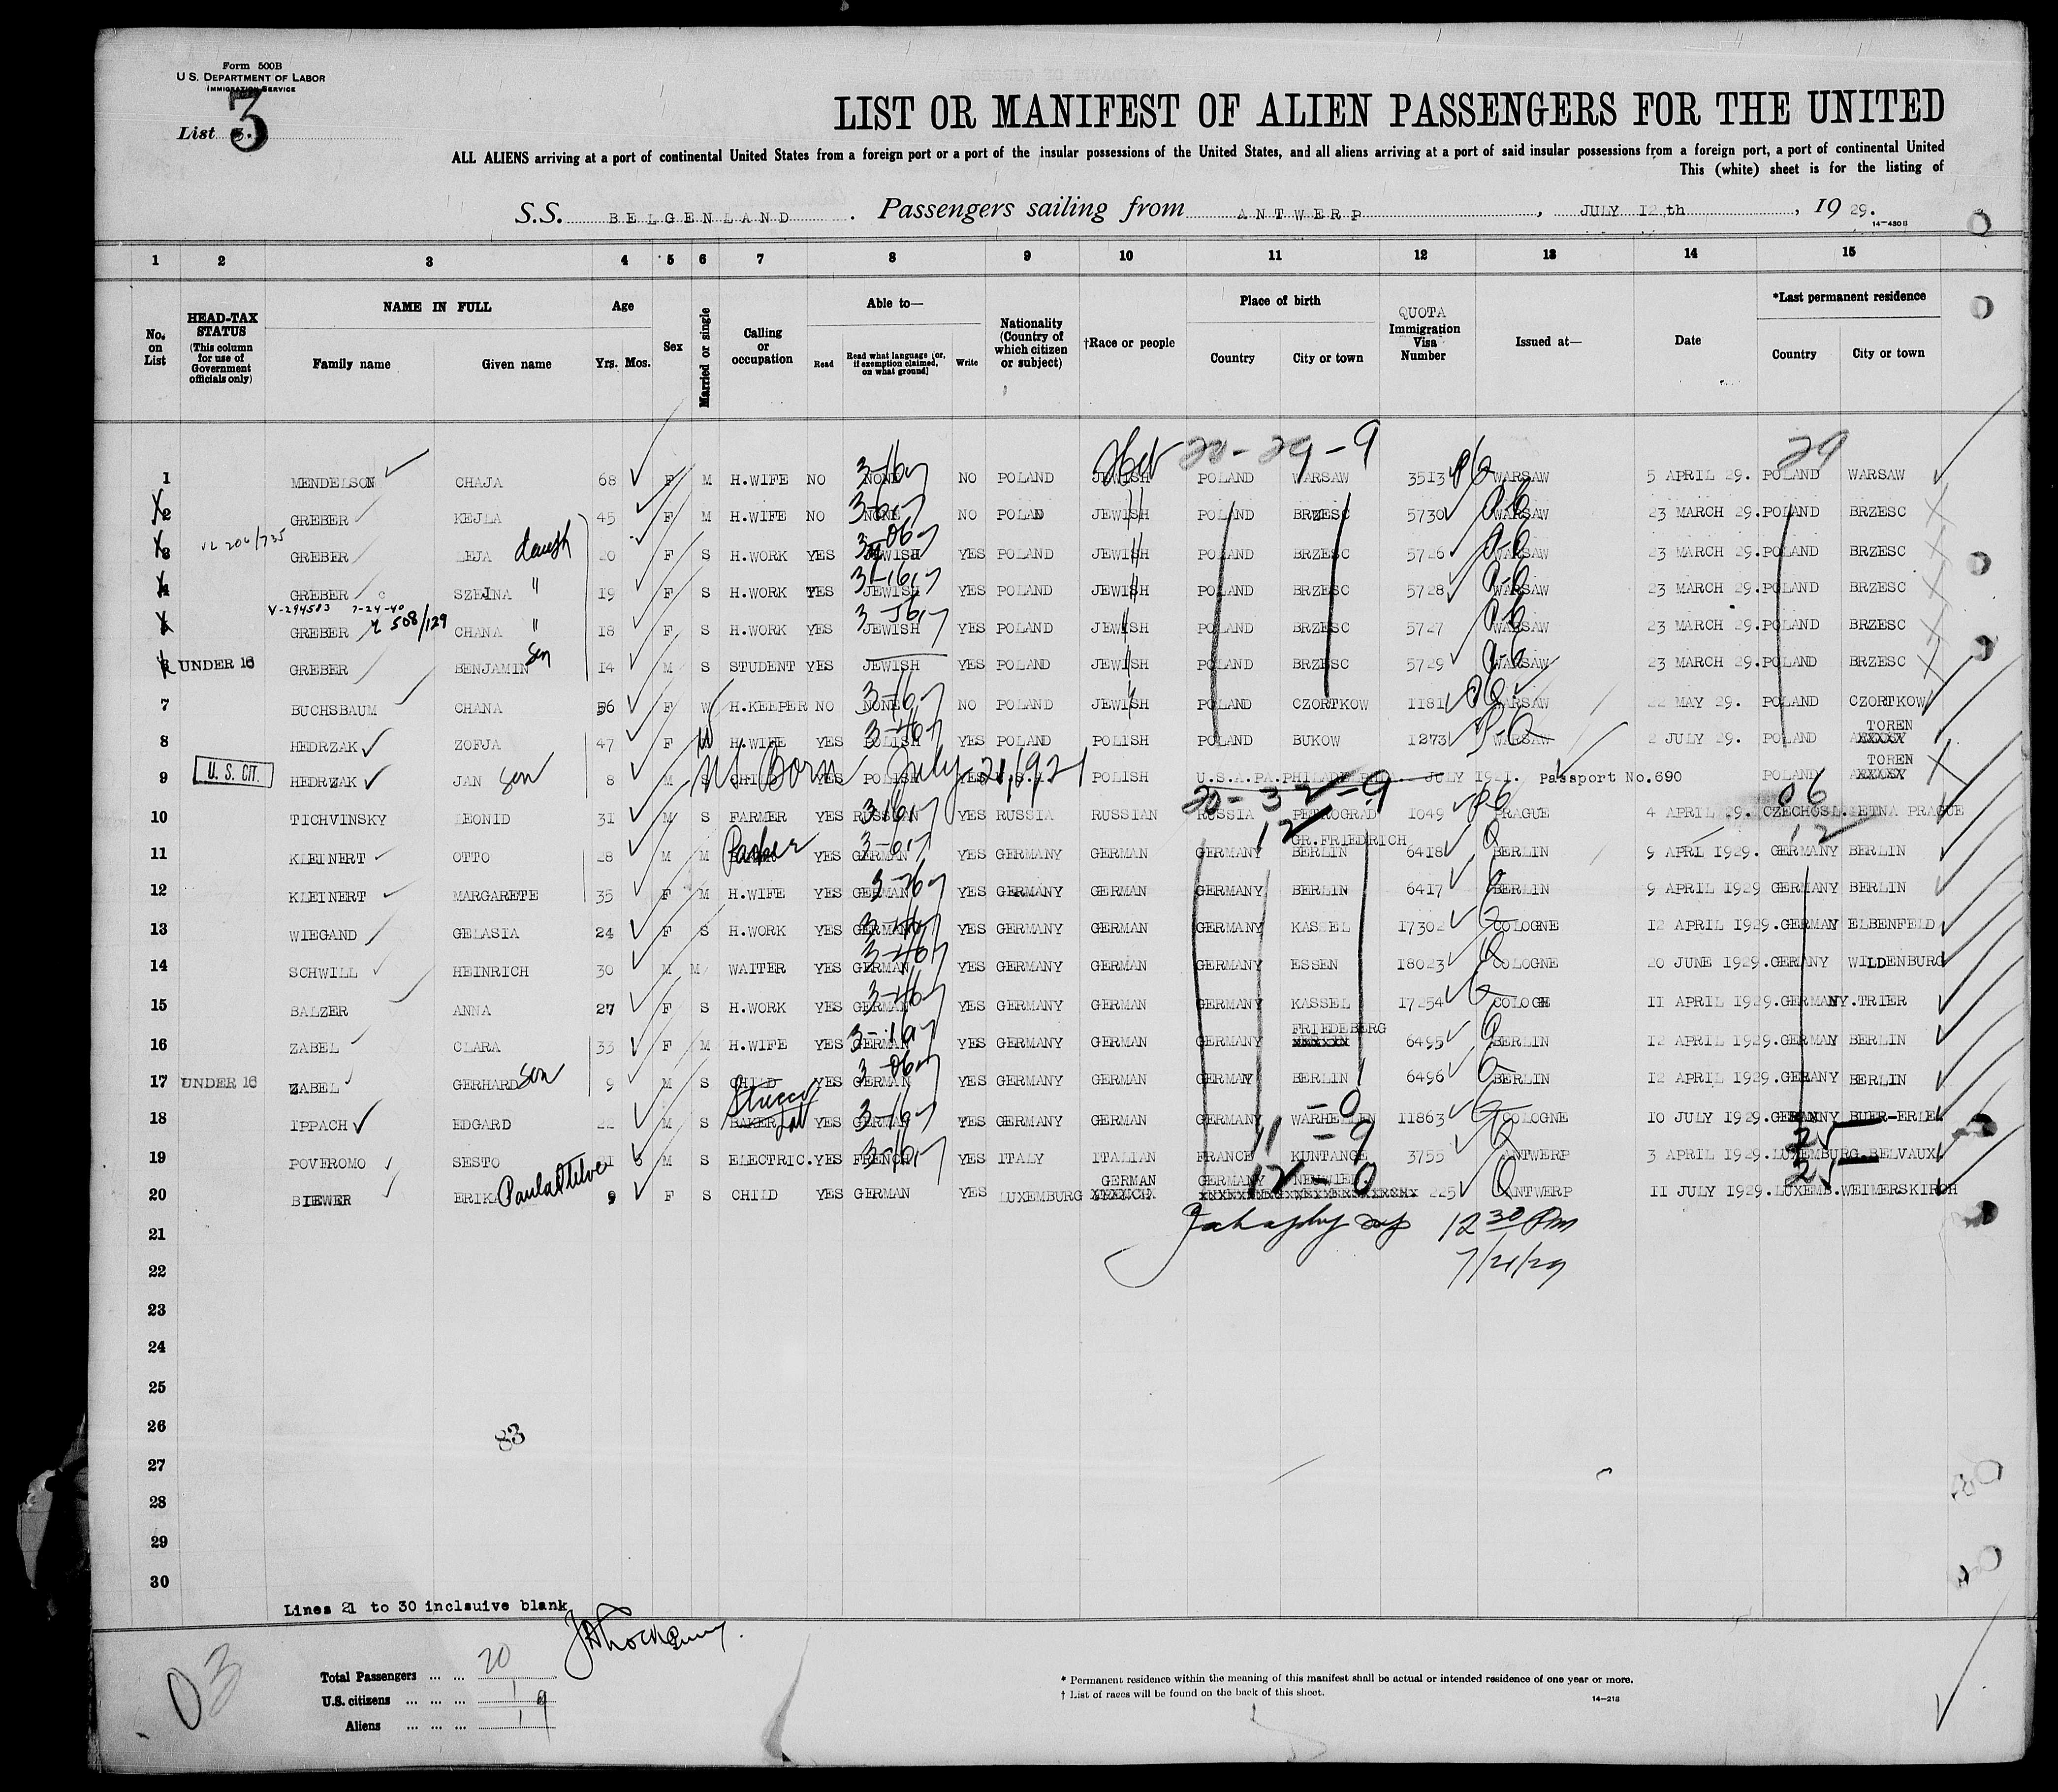 Form 500B
U.S. DEPARTMENT OF LABOR
IMMIGRATION SERVICE
List 3
LIST OR MANIFEST OF ALIEN PASSENGERS FOR THE UNITED
ALL ALIENS arriving at a port of continental United States from a foreign port or a port of the insular possessions of the United States, and all aliens arriving at a port of said insular possessions from a foreign port, a port of continental United
This (white) sheet is for the listing of
S.S. BELGENLAND. Passengers sailing from ANTWERP, JULY 12th, 1929.
14-480B
1 2 3 4 5 6 7 8 9 10 11 12 13 14 15
No. on List
HEAD-TAX STATUS (This column for use of Government officials only)
NAME IN FULL Family name Given name
Age Yrs. Mos.
Sex
Married or single
Calling or occupation
Able to— Read Read what language (or, if exemption claimed, on what ground) Write
Nationality (Country of which citizen or subject)
†Race or people
Place of birth Country City or town
QUOTA Immigration Visa Number
Issued at—
Date
*Last permanent residence Country City or town
20-29-9 29
1 MENDELSON CHAJA 68 F M H.WIFE NO NONE NO POLAND JEWISH POLAND WARSAW 3513 WARSAW 5 APRIL 29. POLAND WARSAW
2 GREBER KEJLA 45 F M H.WIFE NO NONE NO POLAND JEWISH POLAND BRZESC 5730 WARSAW 23 MARCH 29. POLAND BRZESC
3 GREBER LEJA daugh 20 F S H.WORK YES JEWISH YES POLAND JEWISH POLAND BRZESC 5726 WARSAW 23 MARCH 29. POLAND BRZESC
4 GREBER SZEJNA " 19 F S H.WORK YES JEWISH YES POLAND JEWISH POLAND BRZESC 5728 WARSAW 23 MARCH 29. POLAND BRZESC
V-294583 7-24-40
508/129
5 GREBER CHANA " 18 F S H.WORK YES JEWISH YES POLAND JEWISH POLAND BRZESC 5727 WARSAW 23 MARCH 29. POLAND BRZESC
6 UNDER 16 GREBER BENJAMIN son 14 M S STUDENT YES JEWISH YES POLAND JEWISH POLAND BRZESC 5729 WARSAW 23 MARCH 29. POLAND BRZESC
7 BUCHSBAUM CHANA 56 F W H.KEEPER NO NONE NO POLAND JEWISH POLAND CZORTKOW 1181 WARSAW 22 MAY 29. POLAND CZORTKOW
8 HEDRZAK ZOFJA 47 F W H.WIFE YES POLISH YES POLAND POLISH POLAND BUKOW 1273 WARSAW 2 JULY 29. POLAND TOREN
9 U.S. CIT. HEDRZAK JAN son 8 M CHILD YES POLISH YES U.S.A. POLISH U.S.A. PA. PHILADELPHIA JULY 1921. Passport No.690 POLAND TOREN
Born July 21, 1921
20-32-9 06
10 TICHVINSKY LEONID 31 M S FARMER YES RUSSIAN YES RUSSIA RUSSIAN RUSSIA PETROGRAD 1049 PRAGUE 4 APRIL 29. CZECHOSL. ETNA PRAGUE
12 12
11 KLEINERT OTTO 28 M M YES GERMAN YES GERMANY GERMAN GERMANY GR.FRIEDRICH BERLIN 6418 BERLIN 9 APRL 1929. GERMANY BERLIN
12 KLEINERT MARGARETE 35 F M H.WIFE YES GERMAN YES GERMANY GERMAN GERMANY BERLIN 6417 BERLIN 9 APRIL 1929 GERMANY BERLIN
13 WIEGAND GELASIA 24 F S H.WORK YES GERMAN YES GERMANY GERMAN GERMANY KASSEL 17302 COLOGNE 12 APRIL 1929. GERMANY ELBENFELD
14 SCHWILL HEINRICH 30 M M WAITER YES GERMAN YES GERMANY GERMAN GERMANY ESSEN 18023 COLOGNE 20 JUNE 1929. GERMANY WILDENBURG
15 BALZER ANNA 27 F S H.WORK YES GERMAN YES GERMANY GERMAN GERMANY KASSEL 17254 COLOGNE 11 APRIL 1929. GERMANY. TRIER
16 ZABEL CLARA 33 F M H.WIFE YES GERMAN YES GERMANY GERMAN GERMANY FRIEDEBERG 6495 BERLIN 12 APRIL 1929. GERMANY BERLIN
17 UNDER 16 ZABEL GERHARD son 9 M S CHILD YES GERMAN YES GERMANY GERMAN GERMANY BERLIN 6496 BERLIN 12 APRIL 1929. GERMANY BERLIN
18 IPPACH EDGARD 22 M S BAKER YES GERMAN YES GERMANY GERMAN GERMANY 11863 COLOGNE 10 JULY 1929. GERMANY BUER-ERLE
11-9
19 POVEROMO SESTO M S ELECTRIC. YES FRENCH YES ITALY ITALIAN FRANCE KUNTANGE 3755 ANTWERP 3 APRIL 1929. LUXEMBURG. BELVAUX
12-0
20 BIEWER ERIKA 9 F S CHILD YES GERMAN YES LUXEMBURG GERMAN GERMANY NEUWIED 225 ANTWERP 11 JULY 1929. LUXEMB. WEIMERSKIRCH
21 12 30 Pm
22 7/21/29
23
24
25
26
83
27
28
29
30
Lines 21 to 30 inclsuive blank
Total Passengers ... ... 20
U.S. citizens ... ... ... 1
Aliens ... ... ... 19
03
* Permanent residence within the meaning of this manifest shall be actual or intended residence of one year or more.
† List of races will be found on the back of this sheet.
14-218